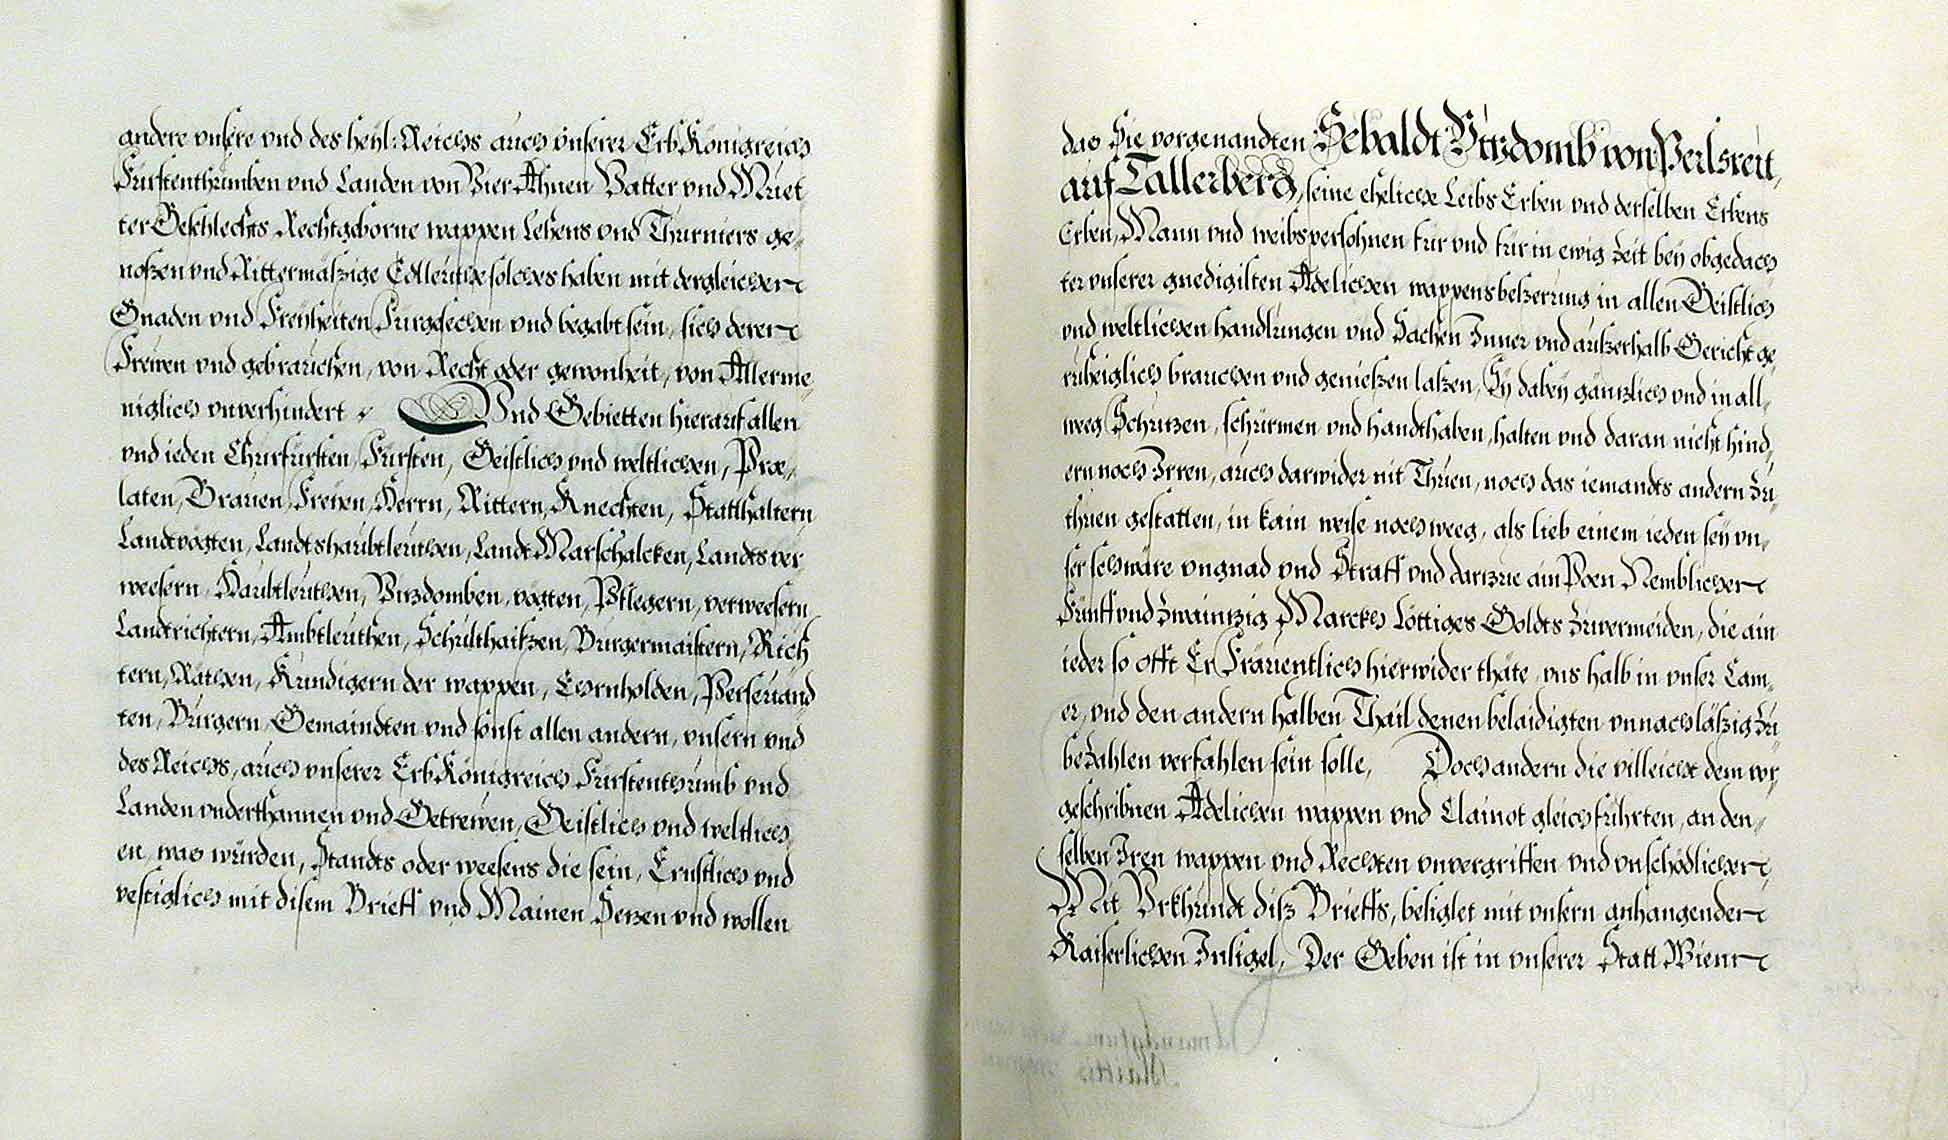 andere vnsere vnd des heyl: Reichs auch vnserer ErbKönigreich
Fürstenthumben vnd Landen von Vier Ahnen Vatter vnd Muet
ter Geschlechts Rechtgeborne wappen Lehens vnd Thurniers ge,
noßen vnd Rittermäßige Edlleuthe solches haben mit dergleichen
Gnaden vnd Freÿheiten Fürgesechen vnd begabt sein, sich deren
Frewen vnd gebrauchen, von Recht oder gewonheit, von Allerme,
niglich vnverhindert Vnd Gebietten hierauf allen
vnd ieden Churfürsten, Fürsten, Geistlich vnd weltlichen, Præ,
laten, Grauen, Freÿen, Herrn, Rittern, Knechten, Statthaltern
Landtvögten, Landtshaubtleuthen, LandtMarschalcken, Landtsver
weesern, Haubtleuthen, Vizdomben, vögten, Pflegern, verweesern,
Landtrichtern, Ambtleuthen, Schulthaißen, Burgermaistern, Rich
tern, Räthen, Kündigern der wappen, Ehrnholden, Perseuand
ten, Burgern, Gemaindten vnd sonst allen andern, vnsern vnd
des Reichs, auch vnserer ErbKönigreich Fürstenthumb vnd
Landen vnderthannen vnd Getrewen, Geistlich vnd weltlich,
en, was würden, Standts oder weesens die sein, Ernstlich vnd
vestiglich mit disem Brieff vnd Mainen Sezen vnd wollen
das Sie vorgenandten Sebaldt Vizdomb von Perlsreit,
auf Tallerberg, seine eheliche Leibs Erben vnd derselben Erbens
Erben, Mann vnd weibsversohnen für vnd für in ewig Zeit bey obgedach
ter vnserer gnedigisten Adelichen wappensbeßerung in allen Geistlich
vnd weltlichen handlungen vnd Sachen Inner vnd außerhalb Gericht ge
ruheiglich brauchen vnd genießen laßen, Sÿ dabeÿ gäntzlich vnd in all,
weeg Schutzen, schürmen vnd handthaben, halten vnd daran nicht hind,
ern noch Irren, auch darwider nit Thuen, noch das iemandts andern Zu
thuen gestatten, in kain weise noch weeg, als lieb einem ieden seÿ vn,
ser schwäre vngnad vnd Straff vnd dartzue ain Poen Nemblichen
Fünff vnd Zwaintzig Marckh Löttiges Goldts Zuvermeiden, die ain
ieder so offt Er Fräuentlich hierwider thäte, vns halb in vnser Cam,
er, vnd den andern halben Thail denen belaidigten vnnachläßig Zu
beZahlen verfahlen sein solle, Doch andern die villeicht dem vor
geschribnen Adelichen wappen vnd Clainot gleich führten, an den,
selben Iren wappen vnd Rechten vnvergriffen vnd vnschödlichen,
Mit Vrkhundt diß Brieffs, besiglet mit vnsern anhangenden
Kaiserlichen Insigel, Der Geben ist in vnserer Statt Wienn